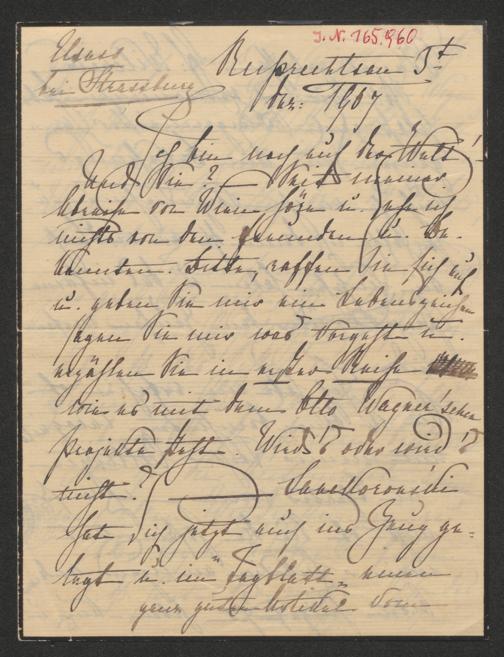 J.N. 165.960
Elsass
bei Strassburg
Ruprechtsau 3t
Dez: 1907
Ich bin noch auf der Welt!
Und Sie? — Seit meiner
Abreise von Wien höre u. sehe ich
nichts von den Freunden u. Be-
kannten. Bitte, raffen Sie sich auf
u. geben Sie mir ein Lebenszeichen
sagen Sie mir was vorgeht u.
erzählen Sie in erster Reihe
wie es mit dem Otto Wagner'schen
Projekte steht. Wird's oder wird's
nicht? — Lanckoroński
hat sich jetzt auch ins Zeug ge-
legt u. im "Tagblatt" einen
ganz guten Artikel vom